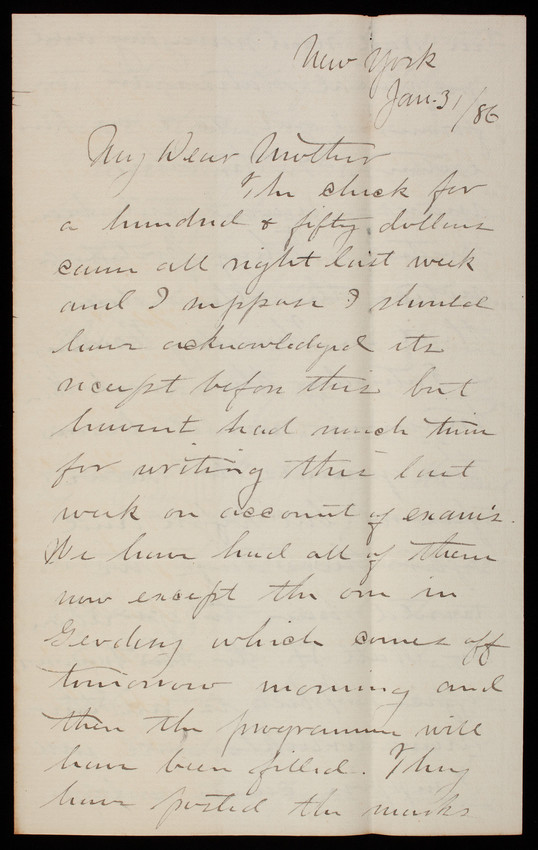 New York
Jan. 31/86
My Dear Mother
The check for
a hundred & fifty dollars
came all right last week
and I suppose I should
have acknowledged its
receipt before this but
havent had much time
for writing this last
week on account of exam's.
We have had all of them
now except the one in
Geodesy which comes off
tomorrow morning and
then the programme will
have been filled. They
have posted the marks